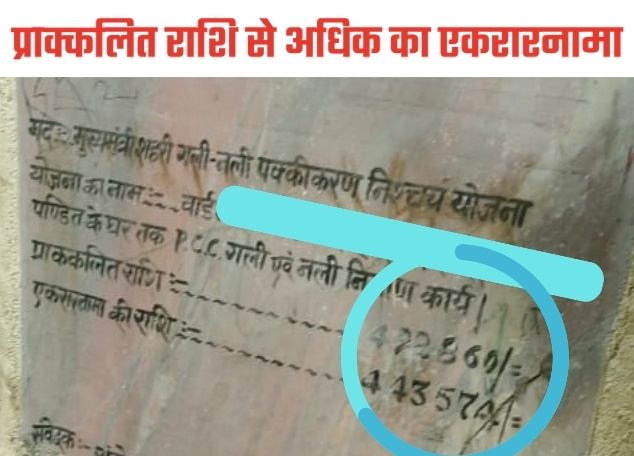 प्राक्कलित राशि से अधिक का एकरारनामा
मद:- मुख्यमंत्री शहरी गली-नली पक्कीकरण निश्चय योजना
योजना का नाम:- वार्ड
पण्डित के घर तक P.C.C. गली एवं नली निर्माण कार्य।
प्राक्कलित राशि:- 422860/=
एकरारनामा की राशि:- 443570/=
संवेदक:-